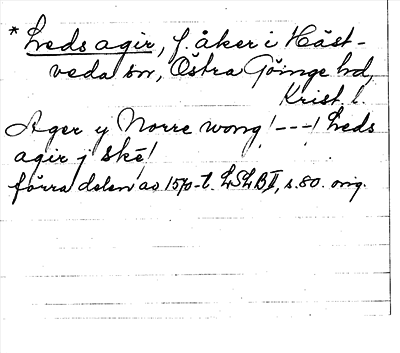 * Leds agir, f. åker i Häst-
veda sn, Östra Göinge hd,
Krist. l.
Ager y Norre wong! ---! Leds
agir j ske!
förra delen av 1570-t. LSLB II, s. 80. orig.